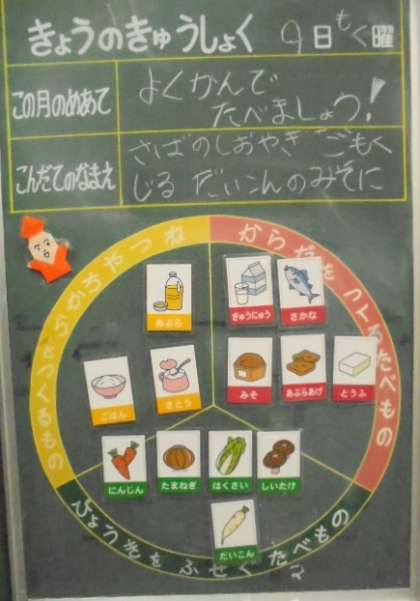 きょうのきゅうしょく 9日もく曜
この月のめあて
よくかんで
たべましょう!
こんだてのなまえ
さばのしおやき ごもく
じる だいこんのみそに
ねつやちからをつくるもの
からだをつくるたべもの
あぶら
ぎゅうにゅう
さかな
ごはん
さとう
みそ
あぶらあげ
とうふ
にんじん
たまねぎ
はくさい
しいたけ
だいこん
びょうきをふせぐたべもの